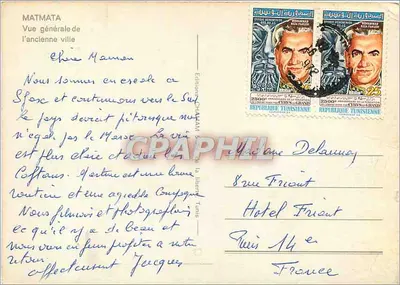 MATMATA
Vue générale de
l'ancienne ville
Chère Maman
Nous sommes en escale à
Sfax et continuons vers le Sud
le pays devient pittoresque mais
n'égale pas le Maroc. La vie
est plus chère et adieu les
Caftans. est une bonne
routine et une agréable compagne
Nous plumons et photographions
ce qu'il y a de beau et
nous vous en ferons profiter à notre
retour.
affectueusement Jacques
REPUBLIQUE TUNISIENNE
REPUBLIQUE TUNISIENNE
25
CPAPHILI
Madame Delaunay
8 rue Friant
Hotel Friant
Paris 14 em
France